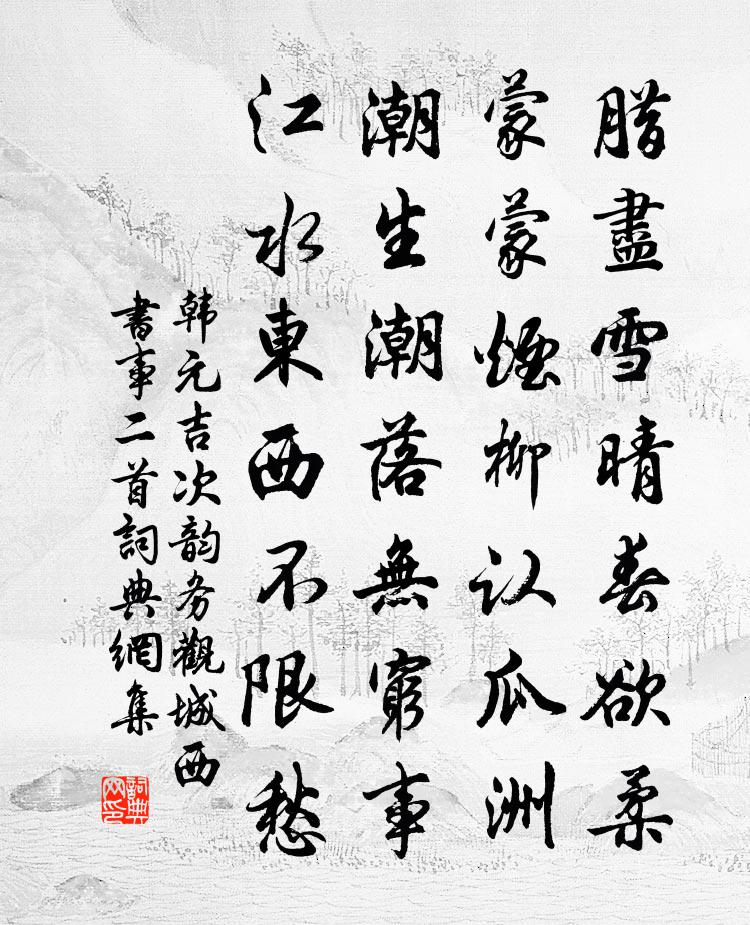 腊盡雪晴春欲柔
蒙蒙煙柳认瓜洲
潮生潮落無窮事
江水東西不限愁
韩元吉次韵务觀城西
書事二首詞典網集
詞典網印